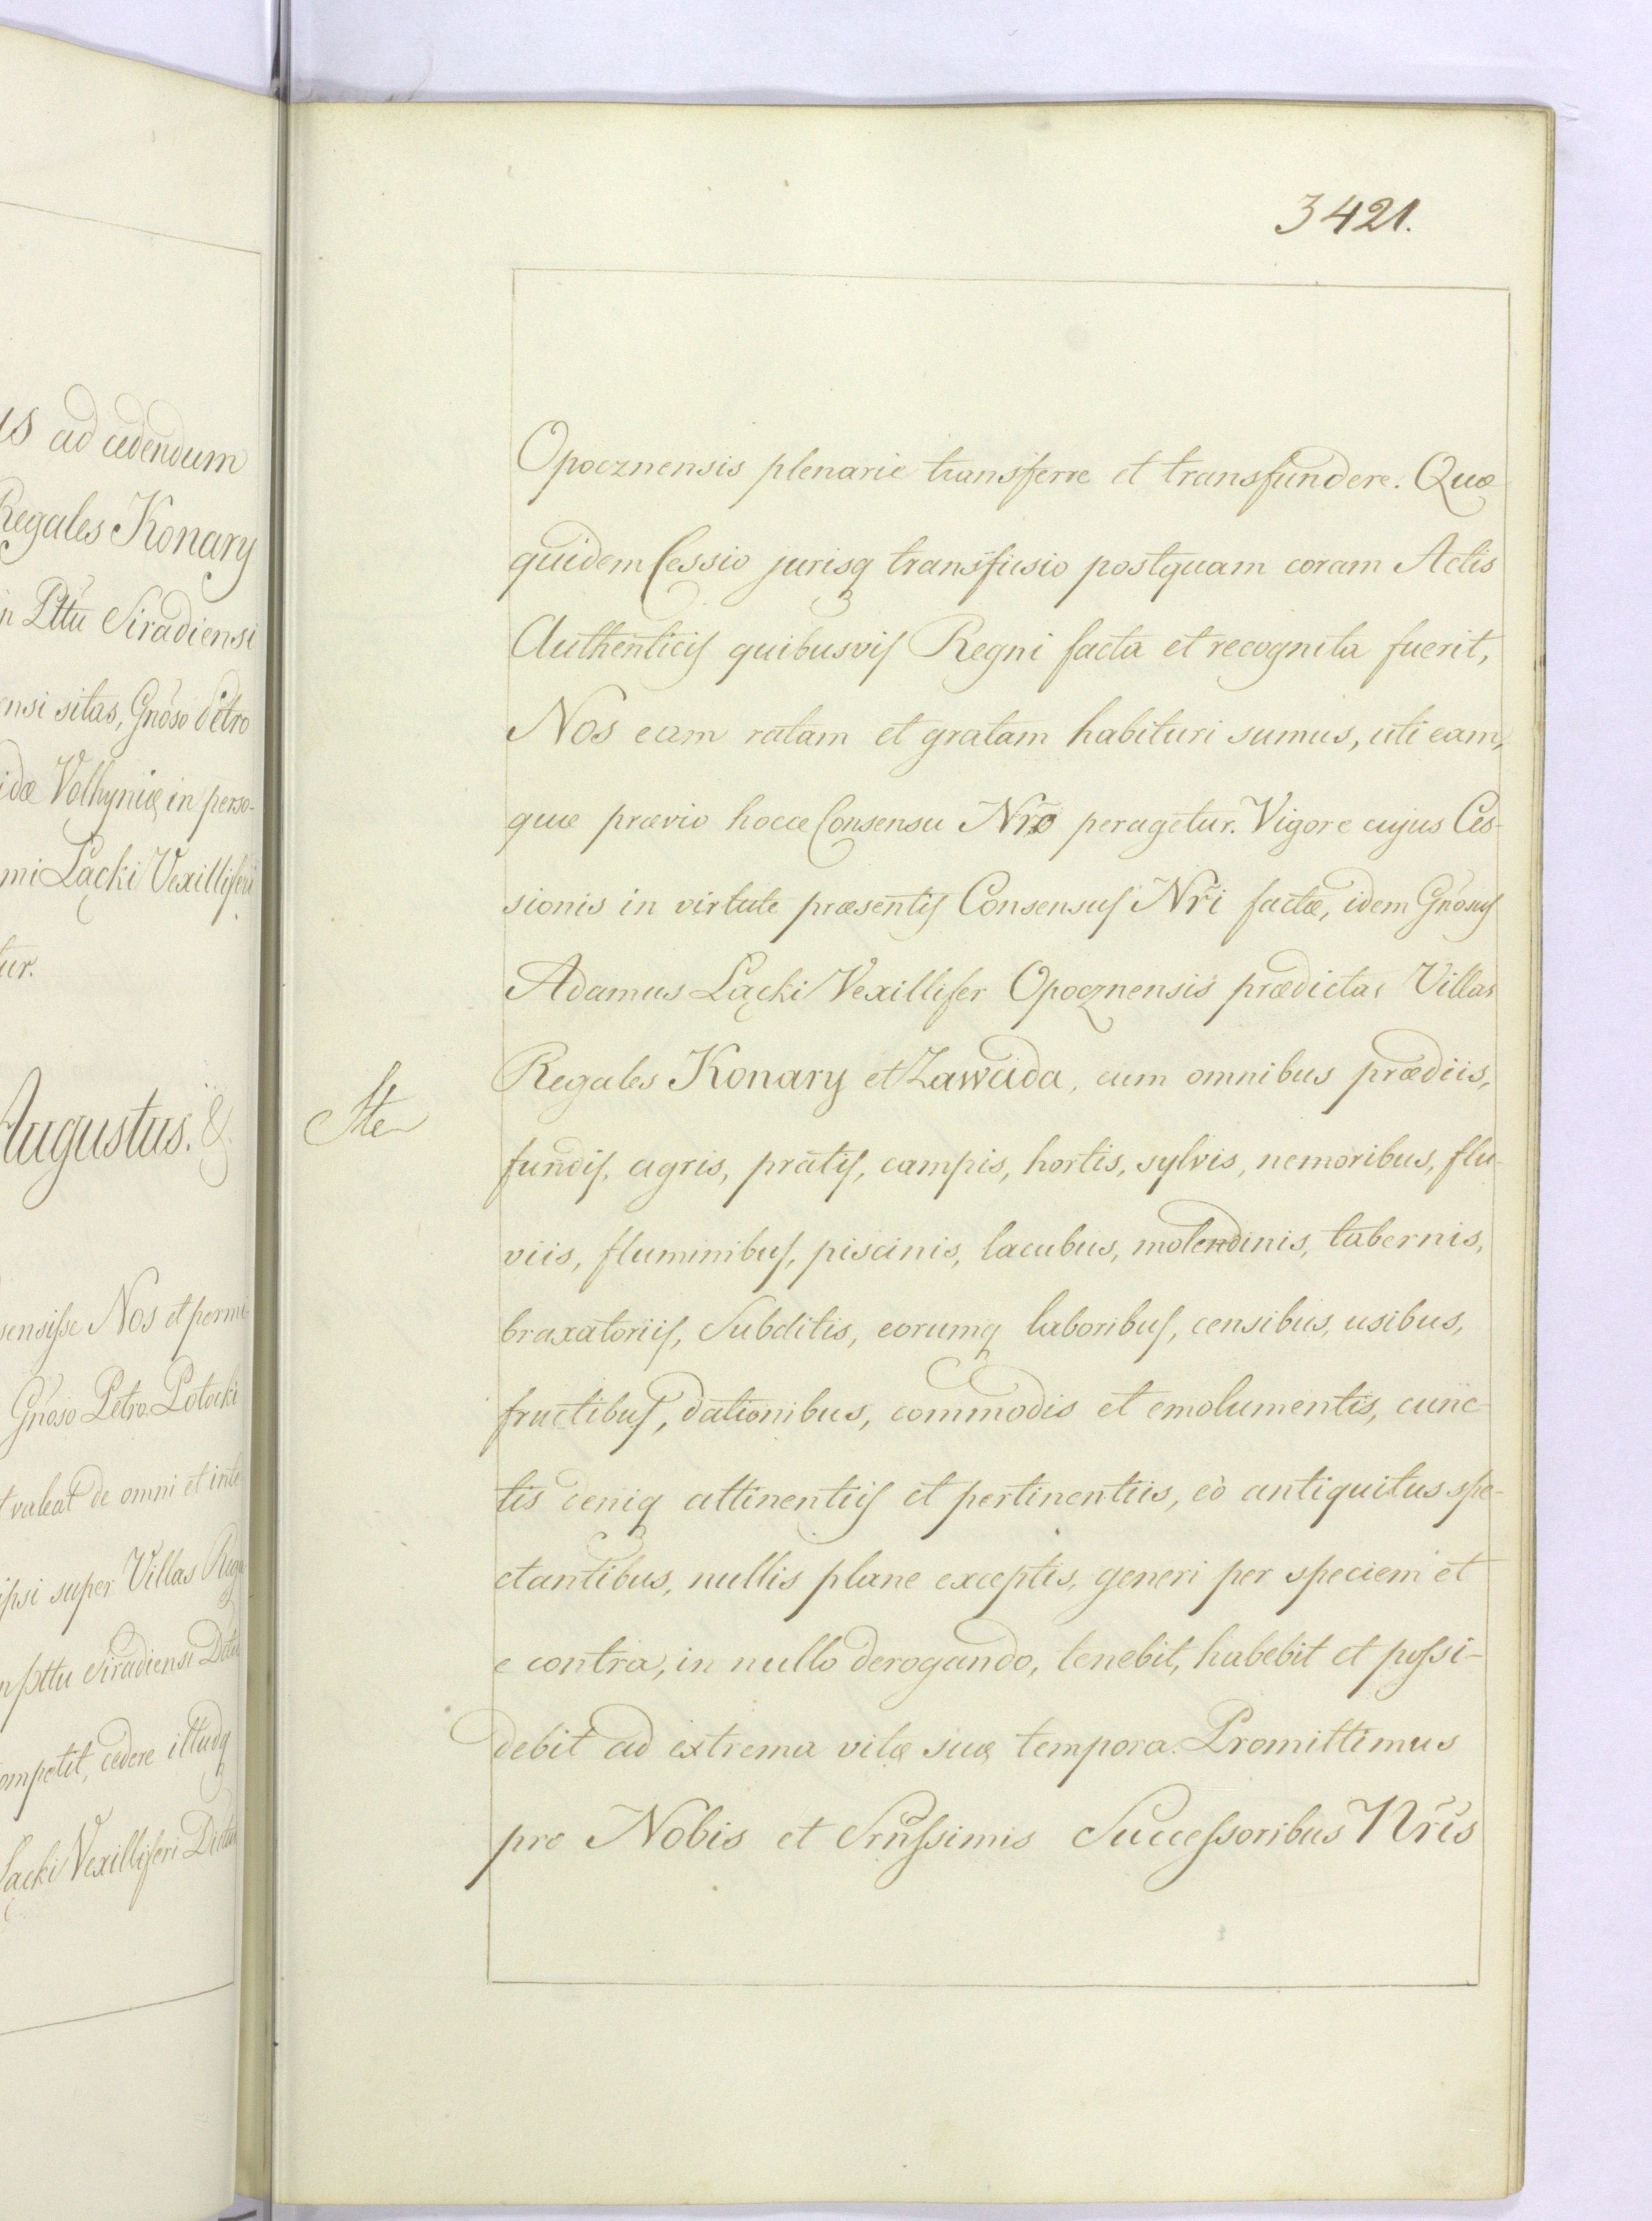 us ad cedendum
Regales Konary
in Pttu Siradiensi
ensi sitas, Gnoso Petro
idæ Volhyniæ in perso-
mi Lącki Vexilliferi
tur.
Augustus. &
sensisse Nos et permi-
Gnoso Petro Potocki
t valeat de omni et inte
ipsi super Villas Rega
n pttu Siradiensi
ompetit, cedere illudq
Lącki Vexilliferi
3421.
Opocznensis plenarie transferre et transfundere. Quæ
quidem Cessio jurisq transfusio postquam coram Actis
Authenticis quibusvis Regni facta et recognita fuerit,
Nos eam ratam et gratam habituri sumus, uti eam,
quæ prævio hocce Consensu Nr̃o peragetur. Vigore cujus Ces-
sionis in virtute præsentis Consensus Nr̃i factæ, idem Gnosus
Adamus Lącki Vexillifer Opocznensis prædictas Villas
Regales Konary et Zawada, cum omnibus prædiis,
fundis, agris, pratis, campis, hortis, sylvis, nemoribus, flu-
viis, fluminibus, piscinis, lacubus, molendinis, tabernis,
braxatoriis, Subditis, eorumq laboribus, censibus, usibus,
fructibus, dationibus, commodis et emolumentis, cunc-
tis deniq attinentiis et pertinentiis, eò antiquitus spe-
ctantibus, nullis plane exceptis, generi per speciem et
e contra, in nullo derogando, tenebit, habebit et possi-
debit ad extrema vitæ suæ tempora. Promittimus
pro Nobis et Srnssimis Successoribus Nr̃is